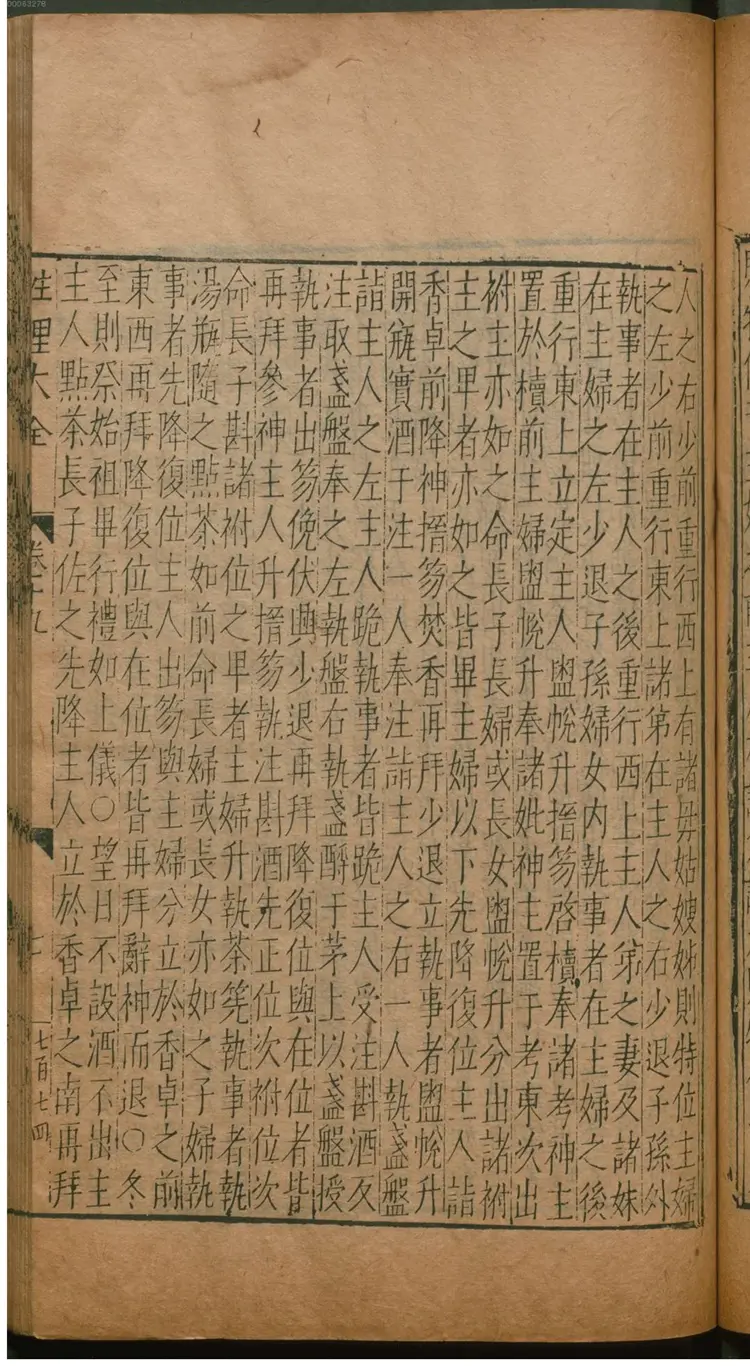 00063276
人之右少前重行西上有諸母姑嫂姊則特位主婦
之左少前重行東上諸弟在主人之右少退子孫外
執事者在主人之後重行西上主人弟之妻及諸妹
在主婦之左少退子孫婦女内執事者在主婦之後
重行東上立定主人盥帨升搢笏啓櫝奉諸考神主
置於櫝前主婦盥帨升奉諸妣神主置于考東次出
祔主亦如之命長子長婦或長女盥帨升分出諸祔
主之卑者亦如之皆畢主婦以下先降復位主人詣
香卓前降神搢笏焚香再拜少退立執事者盥帨升
開瓶實酒于注一人奉注詣主人之右一人執盞盤
詣主人之左主人跪執事者皆跪主人受注斟酒反
注取盞盤奉之左執盤右執盞酹于茅上以盞盤授
執事者出笏俛伏興少退再拜降復位與在位者皆
再拜參神主人升搢笏執注斟酒先正位次祔位次
命長子斟諸祔位之卑者主婦升執茶筅執事者執
湯瓶隨之點茶如前命長婦或長女亦如之子婦執
事者先降復位主人出笏與主婦分立於香卓之前
東西再拜降復位與在位者皆再拜辭神而退○冬
至則祭始祖畢行禮如上儀○望日不設酒不出主
主人點茶長子佐之先降主人立於香卓之南再拜
性理大全 卷十九 七百七四